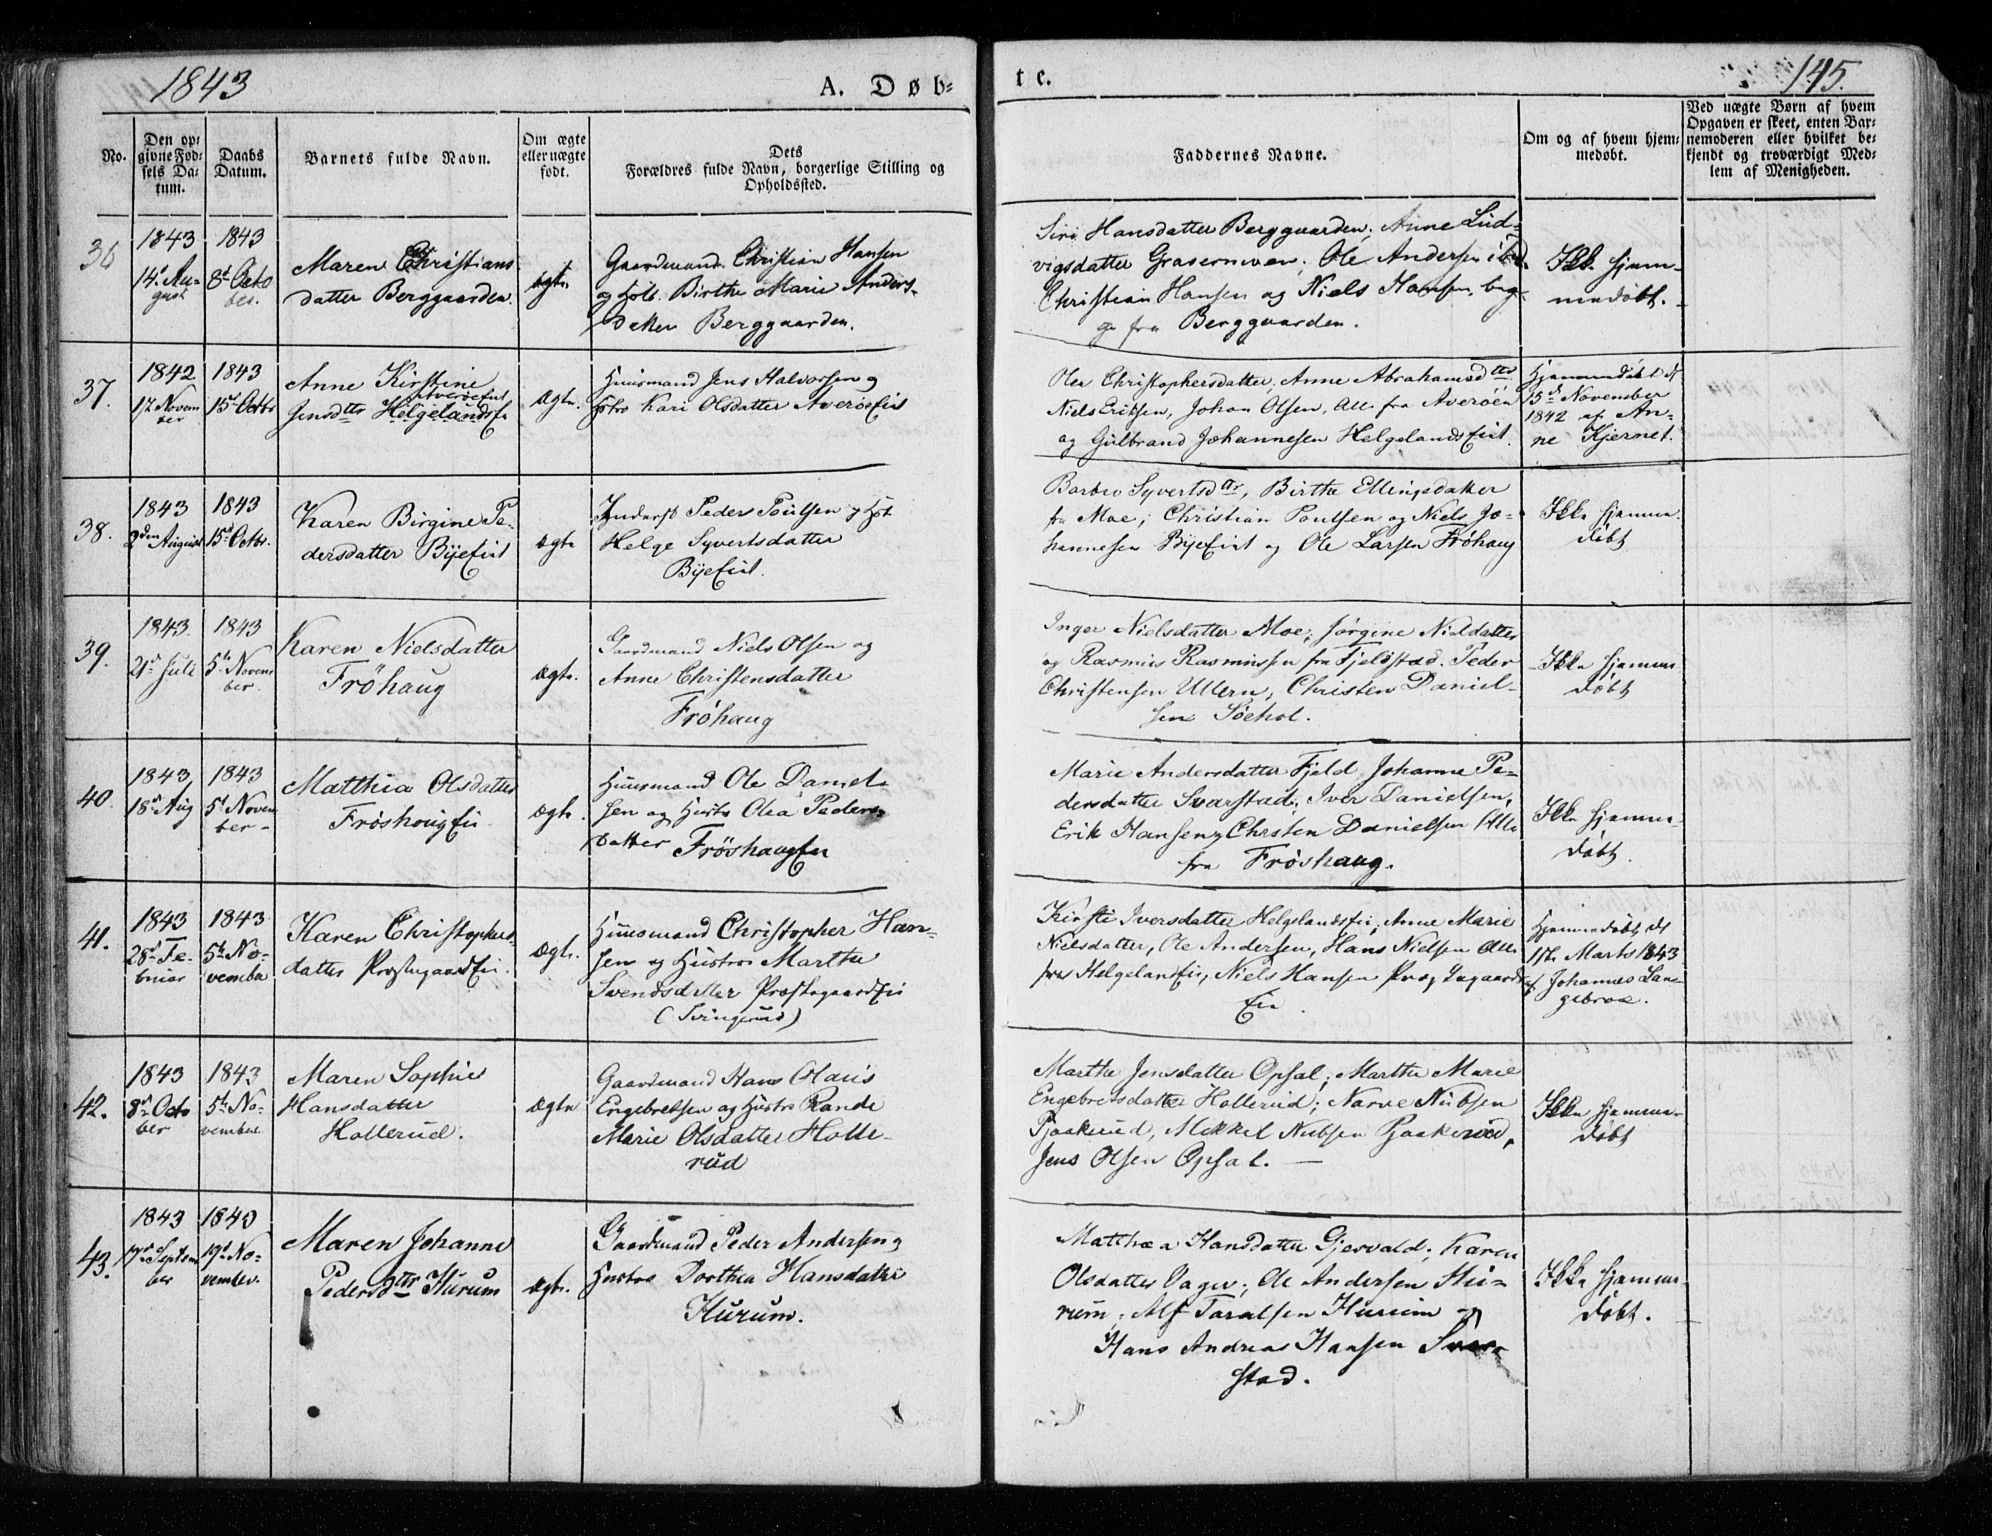 1843
A. Døb-
te.
145.
No.
Den op-
givne Fød-
sels Da-
tum.
Daabs
Datum.
Barnets fulde Navn.
Om ægte
eller uægte
født.
Dets
Forældres fulde Navn, borgerlige Stilling og
Opholdssted.
Faddernes Navne.
Om og af hvem hjem-
medøbt.
Ved uægte Børn af hvem
Opgaven er skeet, enten Bar-
nemoderen eller hvilket be-
kjendt og troværdigt Med-
lem af Menigheden.
36
1843
14de Au-
gust
1843
8de Octo
ber.
Maren Christians
datter Berggaarden
ægte
Gaardmand Christian Hansen
og Hst. Birthe Marie Anders-
datter Berggaarden.
Siri Hansdatter Berggaarden; Anne Lud-
vigsdatter ; Ole Andersen
Christian Hansen og Niels Hansen, beg-
ge fra Berggaarden.
Ikke hjem-
medøbt.
37.
1842
17 Novem
ber
1843
15de Octbr
Anne Kirstine
Averøeeiet
Jensdtr Helgelandsei
Ægte.
Huusmand Jens Halvorsen og
Hstro Kari Olsdatter Averøeeiet
Olea Christophersdatter, Anne Abrahamsdtr
Niels Eriksen, Johan Olsen, Alle fra Averøen
og Gulbrand Johannesen Helgelandseiet.
Hjemmedøbt d
15de November
1842 af An-
ne Kjernet.
38.
1843
2den August
1843
15de Octbr.
Karen Birgine Pe-
dersdatter Byeeiet
ægte
Inderst Peder Poulsen og Hst
Helge Syvertsdatter
Byeeiet.
Barbro Syvertsdtr, Birthe Ellingsdatter
fra Moe; Christian Poulsen og Niels Jo-
hannesen Byeeiet og Ole Larsen Frøhaug
Ikke hjemme
døbt
39.
1843.
21de Juli
1843
5te Novem
ber.
Karen Nielsdatter
Frøhaug
Ægte.
Gaardmand Niels Olsen og
Anne Christensdatter
Frøhaug
Inger Nielsdatter Moe; Jørgine Nielsdatter
og Rasmus Rasmussen fra Fjeldstad. Peder
Christensen Ullern, Christen Daniel-
sen Søehol.
Ikke hjemme
døbt
40.
1843
18de Aug
1843
5te Novem
ber-
Matthia Olsdatter
Frøshougei
Ægte.
Huusmand Ole Daniel
sen og Hustro Olea Peders-
datter Frøshaugei
Marie Andersdatter Fjeld, Johanne Pe-
dersdatter Svarstad; Iver Danielsen,
Erik Hansen, Christen Danielsen Alle
fra Frøshaug.
Ikke hjemme-
døbt.
41.
1843
28de Fe-
bruar
1843
5te No-
vember
Karen Christophers-
datter Præstegaardsei.
Ægte.
Huusmand Christopher Han-
sen og Hustro Marthe
Svendsdatter Præstegaardsei
(Svingerud)
Kirsti Iversdatter Helgelandsei, Anne Marie
Nielsdatter, Ole Andersen, Hans Nielsen Alle
fra Helgelandsei, Niels Hansen Præstegaards
Eie.
Hjemmedøbt d
17de Marts 1843
af Johannes Lan-
gebroe.
42.
1843
8de Octo
ber
1843
5te No-
vember
Maren Sophie
Hansdatter
Hollerud.
Ægte
Gaardmand Hans Olaus
Engebretsen og Hustro Rande
Marie Olsdatter Holle-
rud
Marthe Jensdatter Opsal; Marthe Marie
Engebretsdatter Hollerud; Narve Nubsen
Pjaakerud, Mikkel Nubsen Pjaakerud,
Jens Olsen Opsal. —
Ikke hjemme-
døbt
43.
1843
17de Septem
ber
1843
19de No-
vember.
Maren Johanne
Pedersdtr Hurum
Ægte.
Gaardmand Peder Andersen og
Hustro Dorthea Hansdatter
Hurum.
Matthea Hansdatter Gjesvald; Karen
Olsdatter Vager; Ole Andersen Hu-
rum; Alf Taralsen Hurum og
Hans Andreas Hansen Svar-
stad.
Ikke hjemme-
døbt.